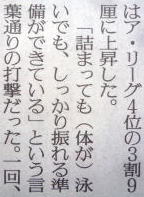 はア・リーグ4位の3割9
厘に上昇した。
「詰まっても(体が)泳
いでも、しっかり振れる準
備ができている」という言
葉通りの打撃だった。一回、